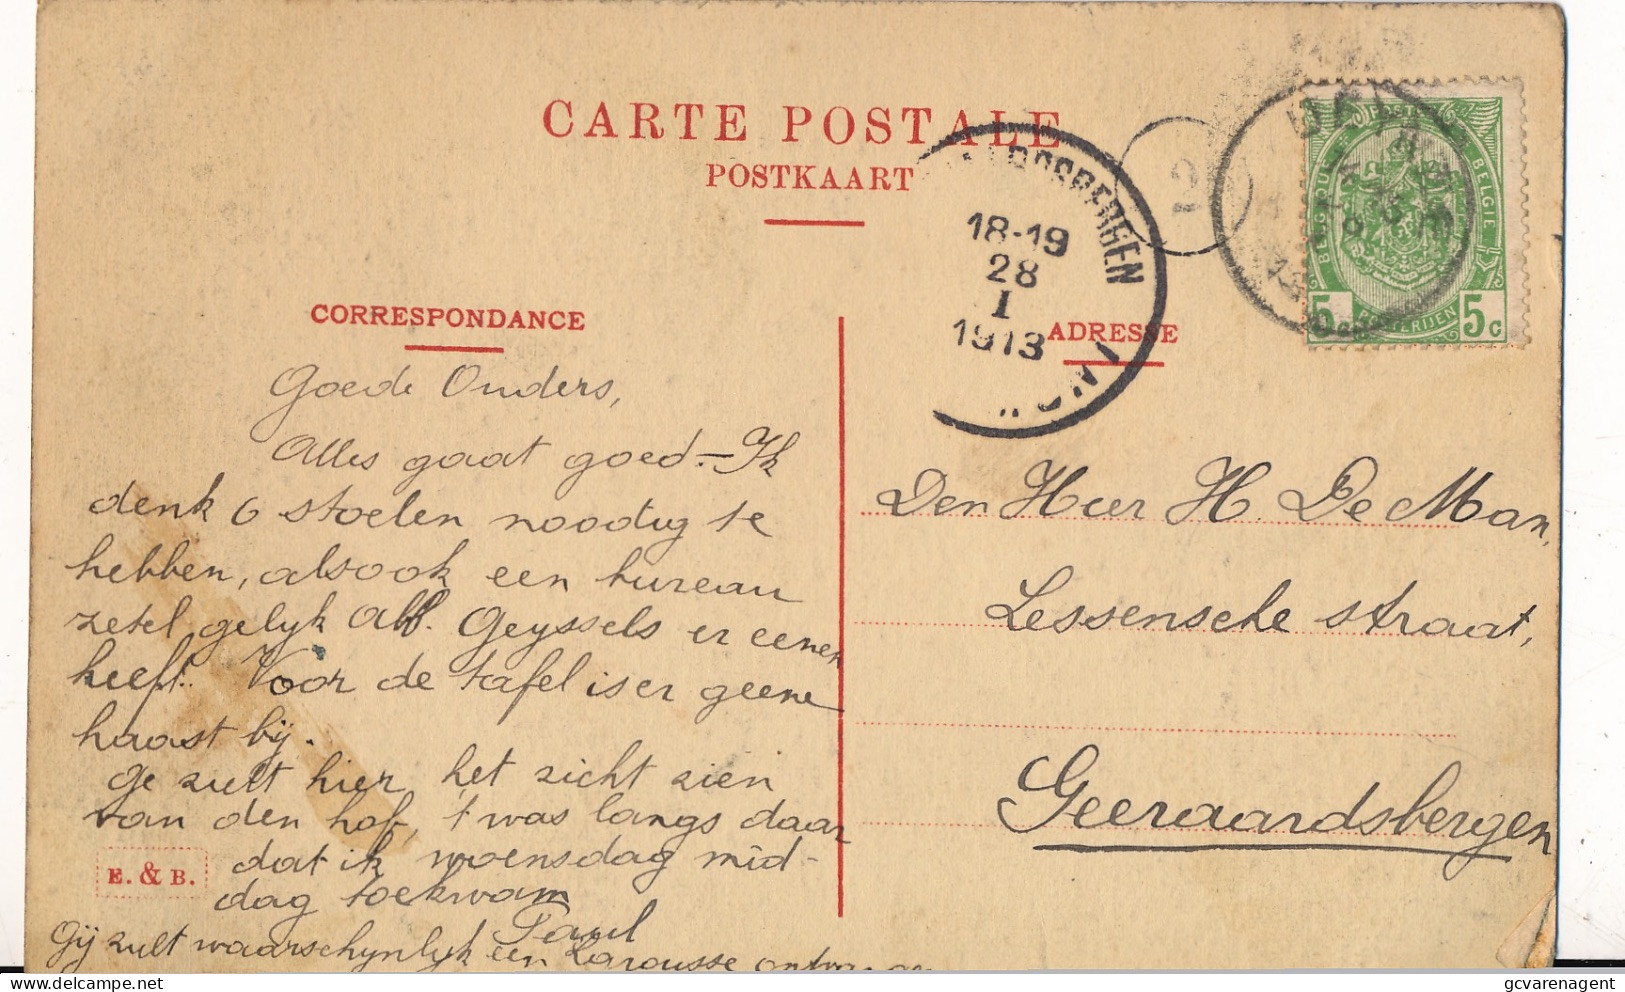 CARTE POSTALE
POSTKAART
CORRESPONDANCE
Goede Ouders,
Alles gaat goed. – Ik
denk 6 stoelen noodig te
hebben, alsook een bureau
zetel gelijk Alf. Geyssels er eenen
heeft. Voor de tafel is er geene
haast bij.
Ge zult hier het zicht zien
van den hof, 't was langs daar
dat ik woensdag mid-
dag toekwam
Paul
Gij zult waarschynlyk een Larousse
E. & B.
18-19
28
I
1913
2
BELGIQUE
POSTERIJEN
BELGIE
5c
5c
ADRESSE
Den Heer H. De Man,
Lessensche straat,
Geeraardsbergen
gcvarenagent
delcampe.net